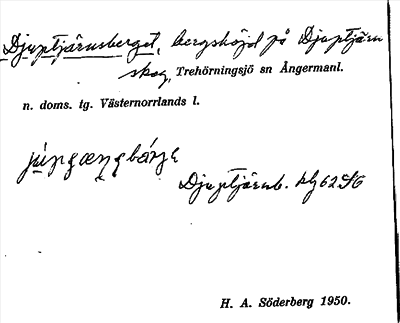 Djuptjärnsberget, bergshöjd på Djuptjärn
skog, Trehörningsjö sn Ångermanl.
n. doms. tg. Västernorrlands l.
Djuptjärnb.
H. A. Söderberg 1950.